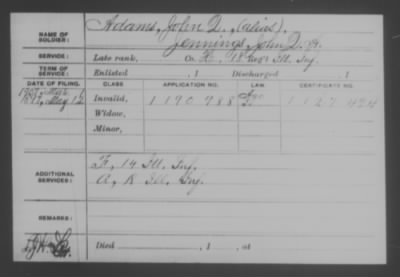 Adams, John Q., (alias),
NAME OF SOLDIER: Jennings, John Q.
SERVICE: Late rank, Co. Regt Ill. Inf.
TERM OF SERVICE: Enlisted , 1 Discharged , 1
DATE OF FILING. CLASS APPLICATION NO. LAW CERTIFICATE NO.
1897, May 12 Invalid, 1190788 1127424
Widow,
Minor,
ADDITIONAL SERVICES: F, 14 Ill. Inf.
A, 8 Ill. Inf.
REMARKS:
Died , 1 , at